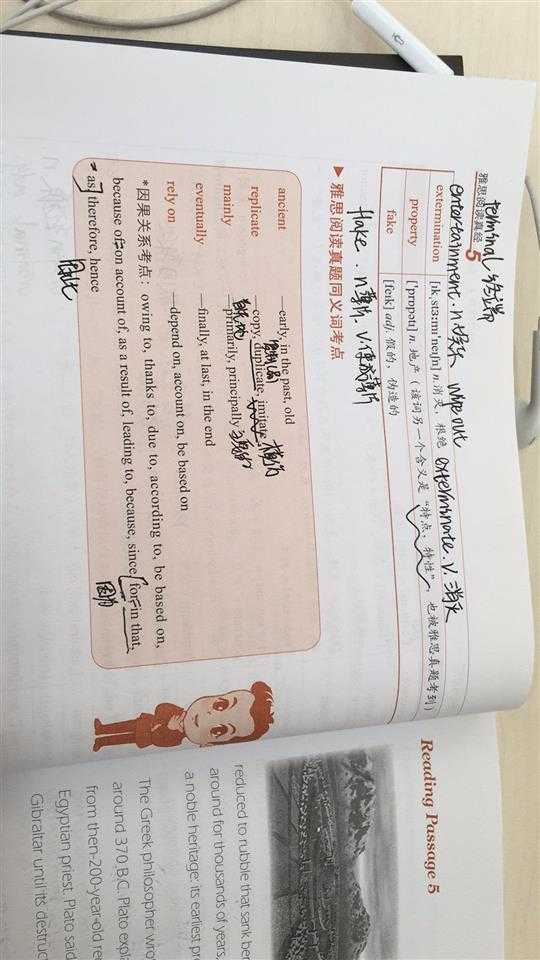 雅思阅读真经5
terminal 终端
entertainment. n. 娱乐 wipe out
exterminate. v. 消灭
extermination [ɪkˌstɜːmɪˈneɪʃn] n. 消灭，根绝
property [ˈprɒpətɪ] n. 地产（该词另一个含义是“特点，特性”，也被雅思真题考到）
fake [feɪk] adj. 假的，伪造的
flake. n 薄片. v. 使成薄片
▶ 雅思阅读真题同义词考点
ancient —early, in the past, old
replicate —copy, duplicate, imitate
模仿
mainly —primarily, principally
eventually —finally, at last, in the end
rely on —depend on, account on, be based on
*因果关系考点：owing to, thanks to, due to, according to, be based on,
because of, on account of, as a result of, leading to, because, since, for, in that,
因为
as, therefore, hence
因此
Reading Passage 5
reduced to rubble that sank ben
around for thousands of years,
a noble heritage: its earliest pr
The Greek philosopher wro
around 370 B.C. Plato expl
from then-200-year-old rec
Egyptian priest. Plato said
Gibraltar until its destruct